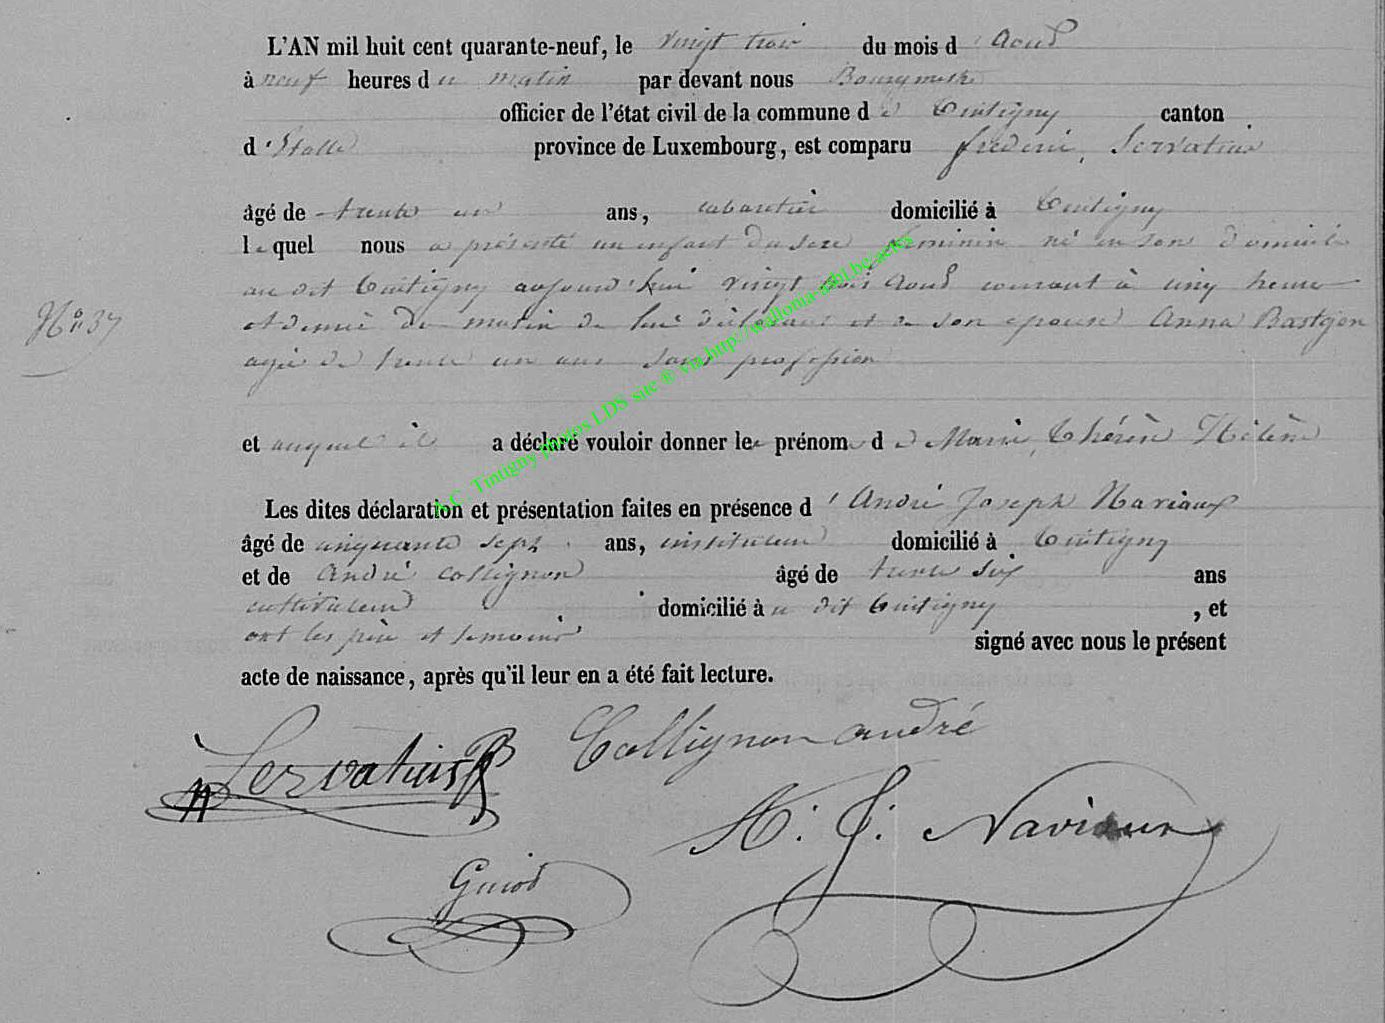 L'AN mil huit cent quarante-neuf, le vingt trois du mois d'Aoud
à neuf heures du matin par devant nous Bourgmestre
officier de l'état civil de la commune de Tintigny canton
d'Etalle province de Luxembourg, est comparu frédéric, Servatius
âgé de trente un ans, cabaretier domicilié à Tintigny
lequel nous a présenté un enfant du sexe feminin né en son domicile
au dit Tintigny aujourd'hui vingt trois Aoud courant à cinq heures
et demie du matin de lui déclarant et de son épouse Anna Bastgen
N° 37
agée de trente un ans sans profession
et auquel il a déclaré vouloir donner les prénoms de Marie, Thérèse Hélène
Les dites déclaration et présentation faites en présence d'André Joseph Naviaux
âgé de cinquante sept ans, instituteur domicilié à Tintigny
et de André Collignon âgé de trente six ans
cultivateur domicilié au dit Tintigny, et
ont les père et temoins signé avec nous le présent
acte de naissance, après qu'il leur en a été fait lecture.
Servatius Collignon andré
A. J. Naviaux
A.C. Tintigny photos LDS site ® via http://wallonia-asbl.be/actes